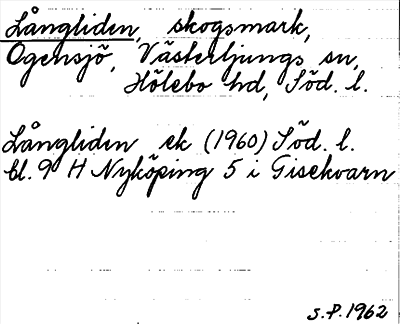 Långliden, skogsmark,
Ogensjö, Västerljungs sn,
Hölebo hd, Söd. l.
Långliden ek (1960) Söd. l.
bl. 9 H Nyköping 5 i Gisekvarn
S.P. 1962